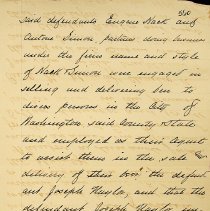 550
said defendants Eugene Hack and
Antone Simon partners doing business
under the firm name and style
of Hack & Simon were engaged in
selling and delivering beer to
divers persons in the City of
Washington said County & State
and employed as their agent
to assist them in the sale &
delivery of their beer the defend
ant Joseph Haylor, and that the
defendant Joseph Haylor in